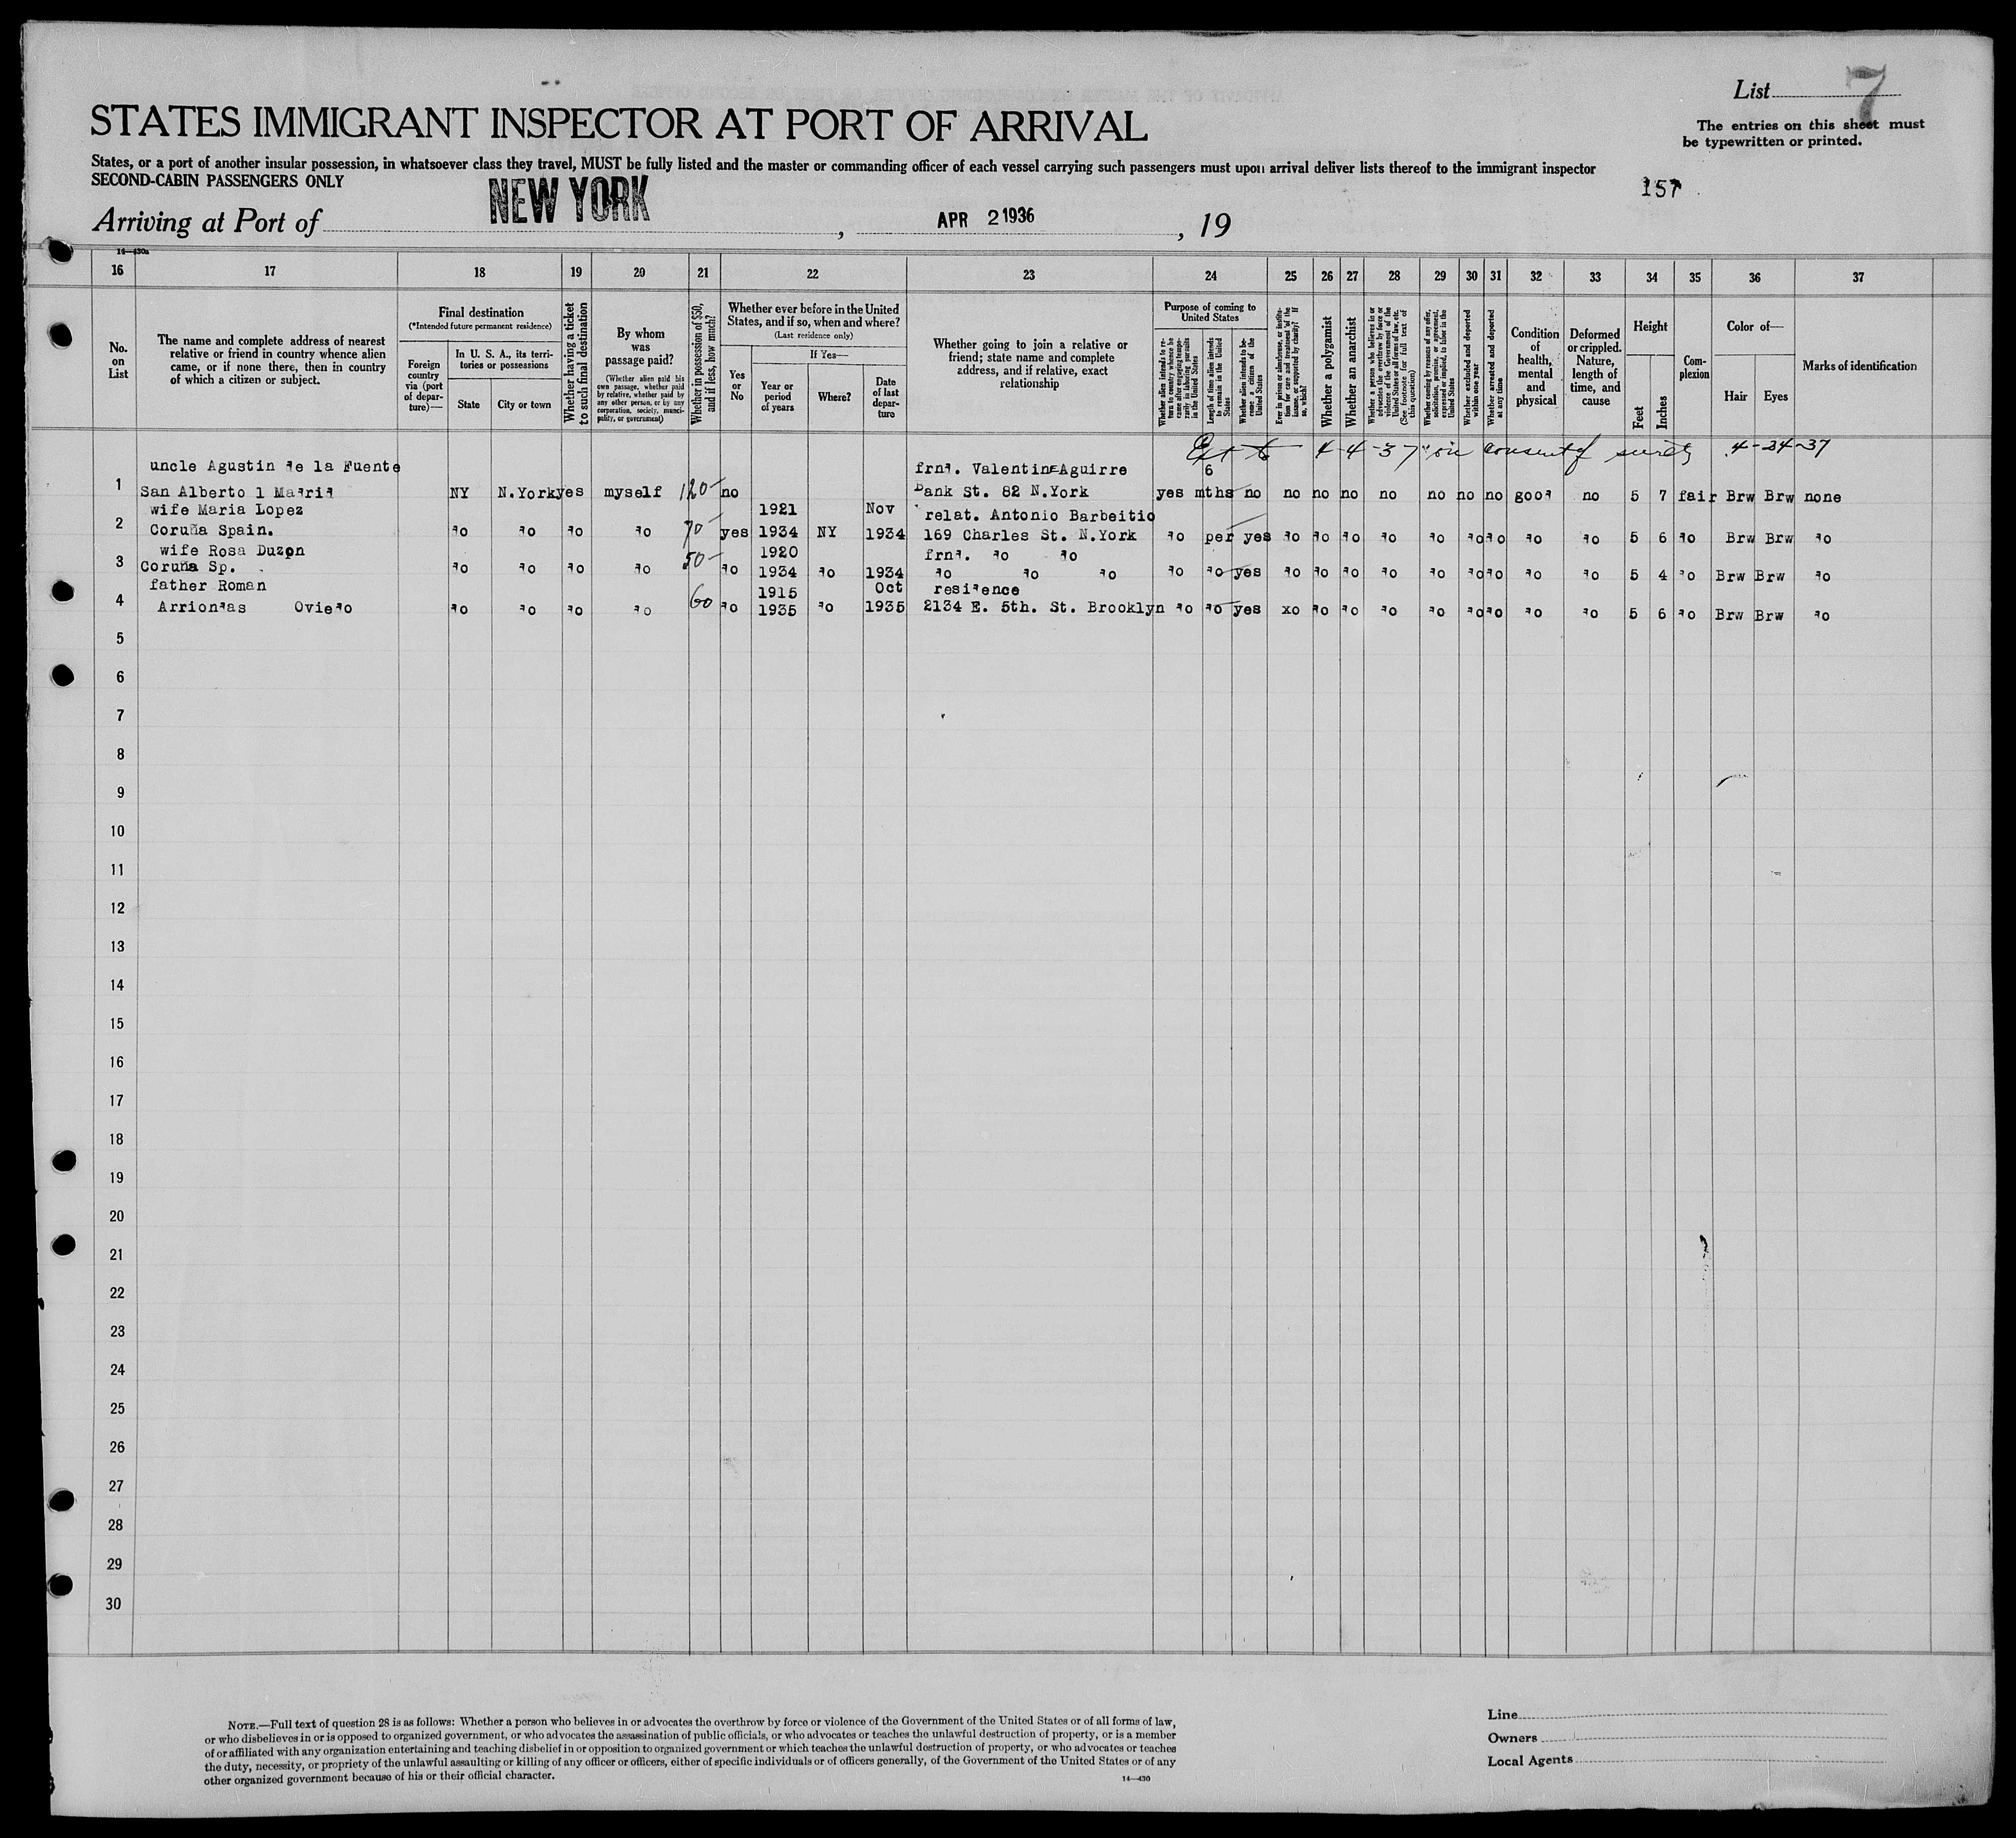 List 7
The entries on this sheet must
be typewritten or printed.
STATES IMMIGRANT INSPECTOR AT PORT OF ARRIVAL
States, or a port of another insular possession, in whatsoever class they travel, MUST be fully listed and the master or commanding officer of each vessel carrying such passengers must upon arrival deliver lists thereof to the immigrant inspector
SECOND-CABIN PASSENGERS ONLY
157
Arriving at Port of NEW YORK, APR 2 1936, 19
14—430a
16 17 18 19 20 21 22 23 24 25 26 27 28 29 30 31 32 33 34 35 36 37
No. on List
The name and complete address of nearest relative or friend in country whence alien came, or if none there, then in country of which a citizen or subject.
Final destination
(*Intended future permanent residence)
Foreign country via (port of departure)—
In U. S. A., its territories or possessions
State
City or town
Whether having a ticket to such final destination
By whom was passage paid?
(Whether alien paid his own passage, whether paid by relative, whether paid by any other person, or by any corporation, society, municipality, or government)
Whether in possession of $50, and if less, how much?
Whether ever before in the United States, and if so, when and where?
(Last residence only)
Yes or No
If Yes—
Year or period of years
Where?
Date of last departure
Whether going to join a relative or friend; state name and complete address, and if relative, exact relationship
Purpose of coming to United States
Whether alien intends to return to country whence he came after engaging temporarily in laboring pursuits in the United States
Length of time alien intends to remain in the United States
Whether alien intends to become a citizen of the United States
Ever in prison or almshouse, or institution for care and treatment of the insane, or supported by charity? If so, which?
Whether a polygamist
Whether an anarchist
Whether a person who believes in or advocates the overthrow by force or violence of the Government of the United States or all forms of law, etc. (See footnote for full text of this question)
Whether coming by reasons of any offer, solicitation, promise, or agreement, expressed or implied, to labor in the United States
Whether excluded and deported within one year
Whether arrested and deported at any time
Condition of health, mental and physical
Deformed or crippled. Nature, length of time, and cause
Height
Feet
Inches
Complexion
Color of—
Hair
Eyes
Marks of identification
Ext to 4-4-37 on consent of surety 4-24-37
uncle Agustin de la Fuente frnd. Valentin Aguirre 6
1 San Alberto 1 Madrid NY N.York yes myself 120- no Bank St. 82 N.York yes mths no no no no no no no no good no 5 7 fair Brw Brw none
wife Maria Lopez 1921 Nov relat. Antonio Barbeitio
2 Coruña Spain. do do do do 70- yes 1934 NY 1934 169 Charles St. N.York do per yes do do do do do do do do do 5 6 do Brw Brw do
wife Rosa Duzon 50- 1920 frnd. do do
3 Coruña Sp. do do do do do 1934 do 1934 do do do do do yes do do do do do do do do do 5 4 do Brw Brw do
father Roman 1915 Oct residence
4 Arriondas Oviedo do do do do 60 do 1935 do 1935 2134 E. 5th. St. Brooklyn do do yes xo do do do do do do do do 5 6 do Brw Brw do
5
6
7
8
9
10
11
12
13
14
15
16
17
18
19
20
21
22
23
24
25
26
27
28
29
30
NOTE.—Full text of question 28 is as follows: Whether a person who believes in or advocates the overthrow by force or violence of the Government of the United States or of all forms of law,
or who disbelieves in or is opposed to organized government, or who advocates the assassination of public officials, or who advocates or teaches the unlawful destruction of property, or is a member
of or affiliated with any organization entertaining and teaching disbelief in or opposition to organized government or which teaches the unlawful destruction of property, or who advocates or teaches
the duty, necessity, or propriety of the unlawful assaulting or killing of any officer or officers, either of specific individuals or of officers generally, of the Government of the United States or of any
other organized government because of his or their official character.
14—430
Line
Owners
Local Agents